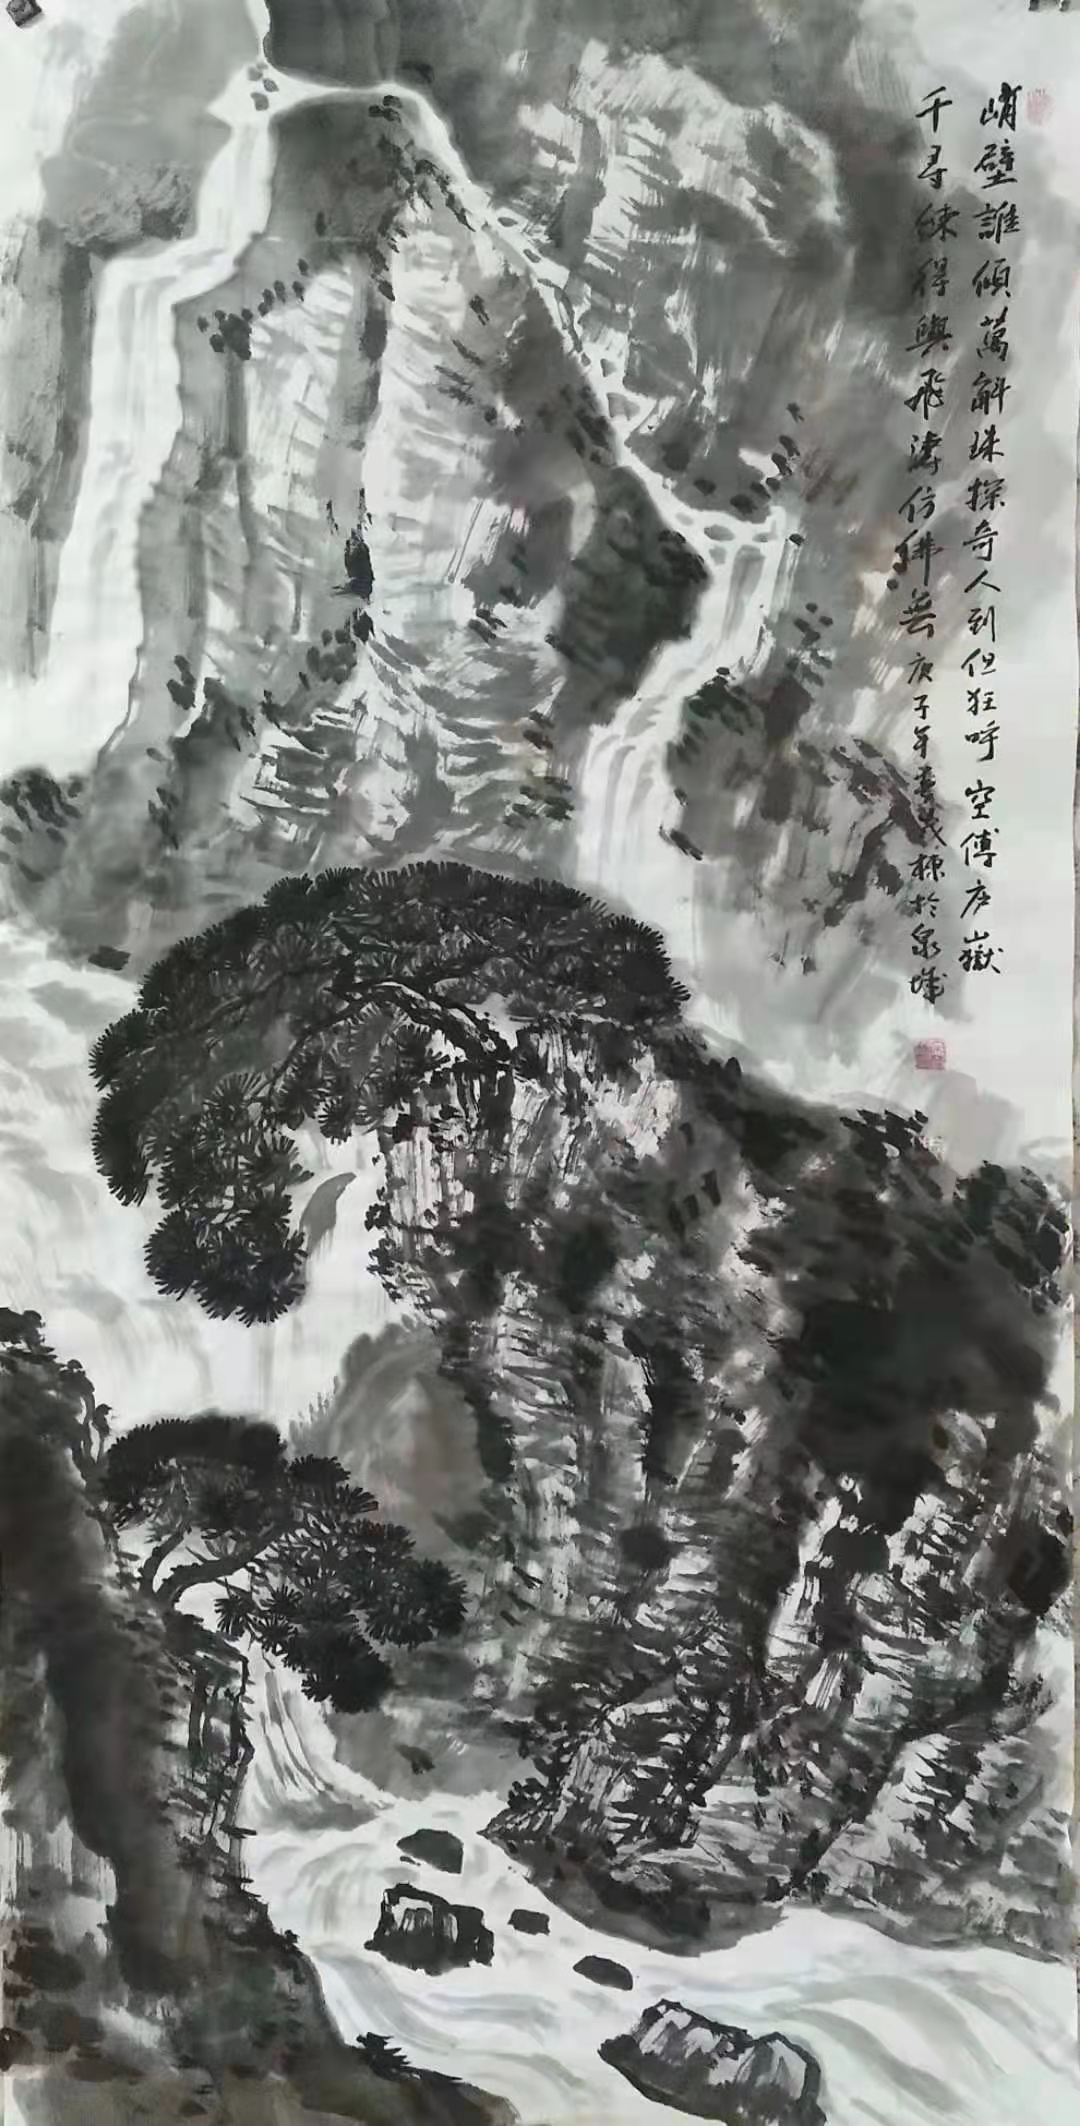 峭壁誰傾萬斛珠探奇人到但狂呼空傳广嶽
千尋練得與飛濤仿佛無庚子年茂栋於泉城